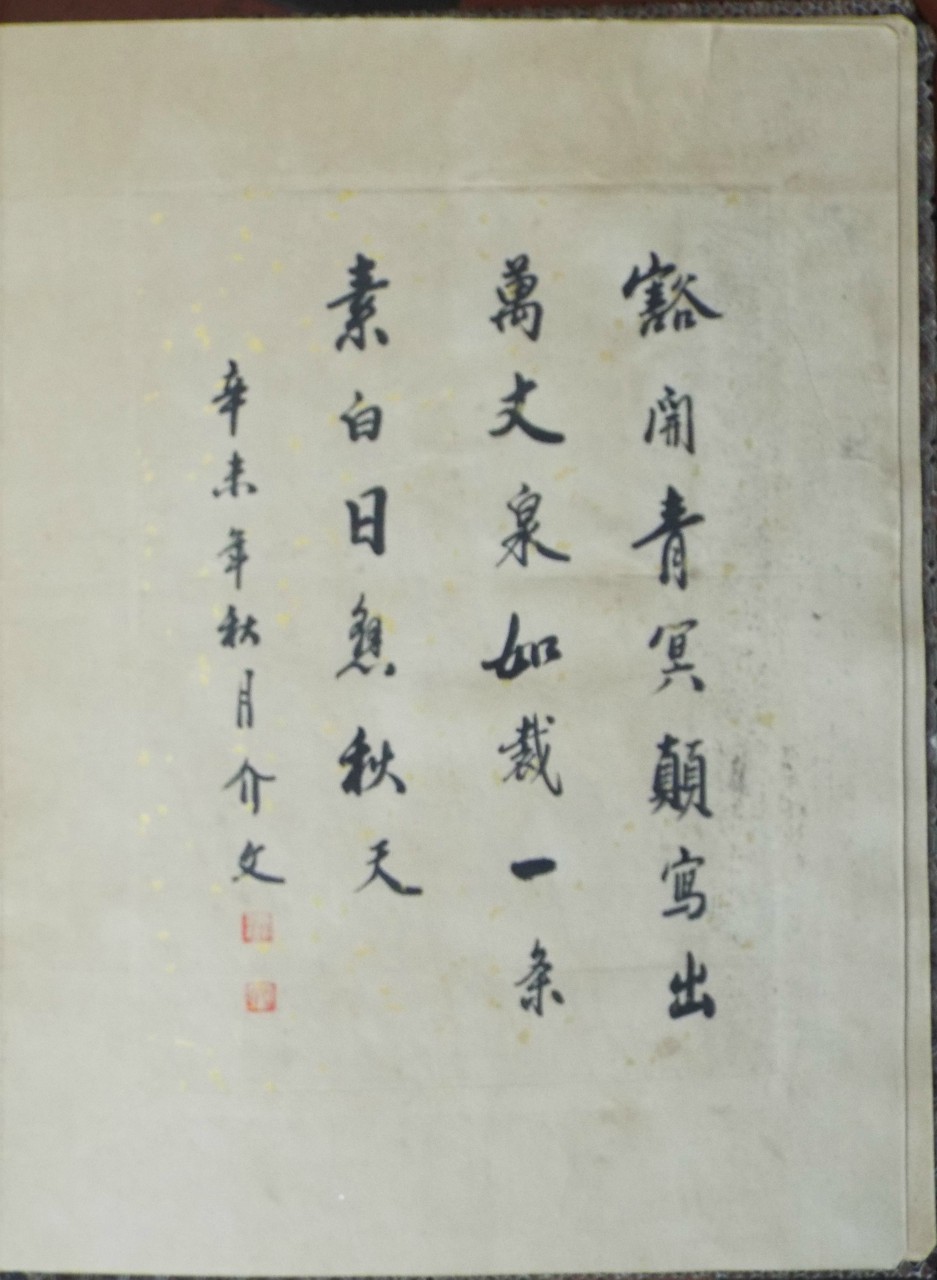 豁開青冥顛寫出
萬丈泉如裁一条
素白日悬秋天
辛未年秋月介文